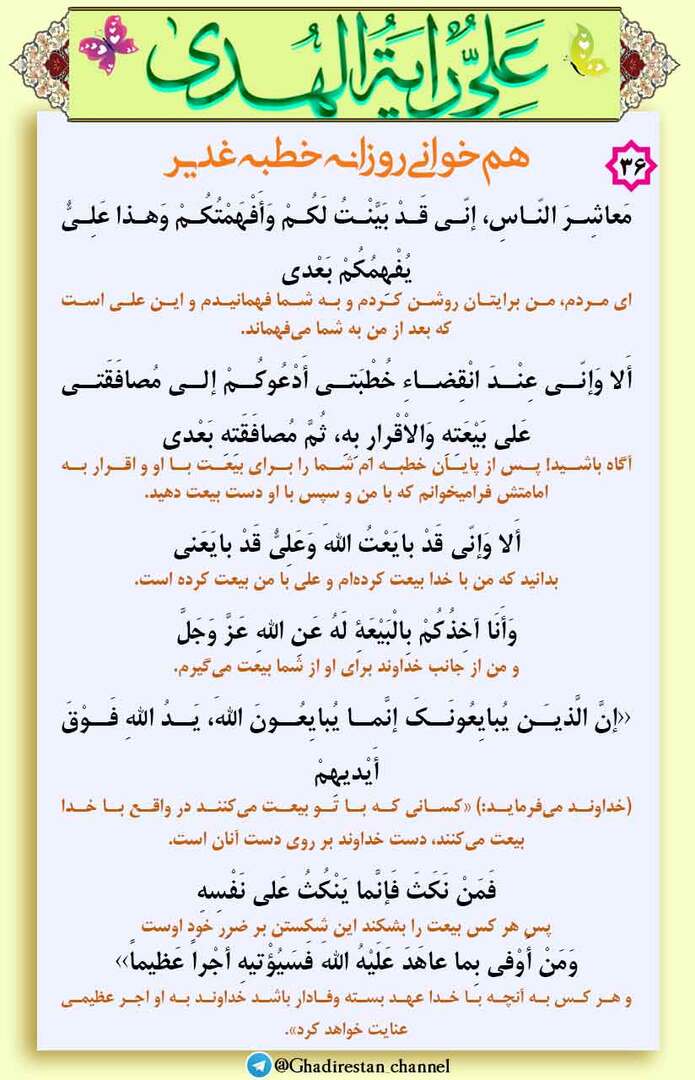 عَلِیٌّ رایَةُ الْهُدی
هم خوانی روزانه خطبه غدیر
۳۶
مَعاشِرَ النّاسِ، إنّی قَدْ بَیَّنْتُ لَکُمْ وَأَفْهَمْتُکُمْ وَهذا عَلِیٌّ
یُفْهِمُکُمْ بَعْدی
ای مردم، من برایتان روشن کردم و به شما فهمانیدم و این علی است
که بعد از من به شما می‌فهماند.
أَلا وَإنّی عِنْدَ انْقِضاءِ خُطْبَتی أَدْعُوکُمْ إلی مُصافَقَتی
عَلی بَیْعَتِهِ وَالْاقْرارِ بِهِ، ثُمَّ مُصافَقَتِهِ بَعْدی
آگاه باشید! پس از پایان خطبه ام شما را برای بیعت با او و اقرار به
امامتش فرامیخوانم که با من و سپس با او دست بیعت دهید.
أَلا وَإنّی قَدْ بایَعْتُ اللهَ وَعَلِیٌّ قَدْ بایَعَنی
بدانید که من با خدا بیعت کرده‌ام و علی با من بیعت کرده است.
وَأَنَا آخِذُکُمْ بِالْبَیْعَةِ لَهُ عَنِ اللهِ عَزَّ وَجَلَّ
و من از جانب خداوند برای او از شما بیعت می‌گیرم.
‹‹إنَّ الَّذینَ یُبایِعُونَکَ إنَّما یُبایِعُونَ اللهَ، یَدُ اللهِ فَوْقَ
أَیْدیهِمْ
(خداوند می‌فرماید:) «کسانی که با تو بیعت می‌کنند در واقع با خدا
بیعت می‌کنند، دست خداوند بر روی دست آنان است.
فَمَنْ نَکَثَ فَإنَّما یَنْکُثُ عَلی نَفْسِهِ
پس هر کس بیعت را بشکند این شکستن بر ضرر خود اوست
وَمَنْ أَوْفی بِما عاهَدَ عَلَیْهُ اللهَ فَسَیُؤْتیهِ أجْراً عَظیماً››
و هر کس به آنچه با خدا عهد بسته وفادار باشد خداوند به او اجر عظیمی
عنایت خواهد کرد».
@Ghadirestan_channel